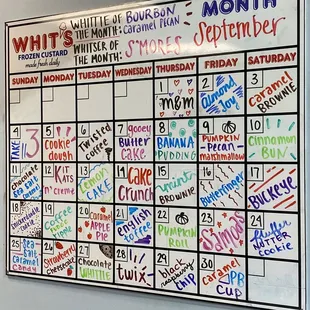 WHIT'S
FROZEN CUSTARD
made fresh daily
WHITTIE OF THE MONTH: BOURBON Caramel PECAN
WHITSER OF THE MONTH: S'MORES
MONTH
September
SUNDAY MONDAY TUESDAY WEDNESDAY THURSDAY FRIDAY SATURDAY
1 m&m
2 Almond Joy
3 caramel BROWNIE
4 TAKE 3
5 cookie dough
6 Twisted coffee
7 gooey Butter cake
8 BANANA PUDDING
9 PUMPKIN -pecan marshmallow
10 Cinnamon BUN
11 chocolate Sea salt
12 Lemon CAKE
13
14 Cake Crunch
15 mint BROWNIE
16 Butterfinger
17 Buckeye
18
19 Coffee
20 CARAMEL APPLE PIE
21 english toffee
22 PUMPKIN ROLL
23 S'mores
24 fluffer NUTTER cookie
25 Sea Salt Caramel Candy
26 Strawberry Cheesecake
27 Chocolate WHITTIE
28 twix
29 black raspberry CHIP
30 Caramel PB CUP